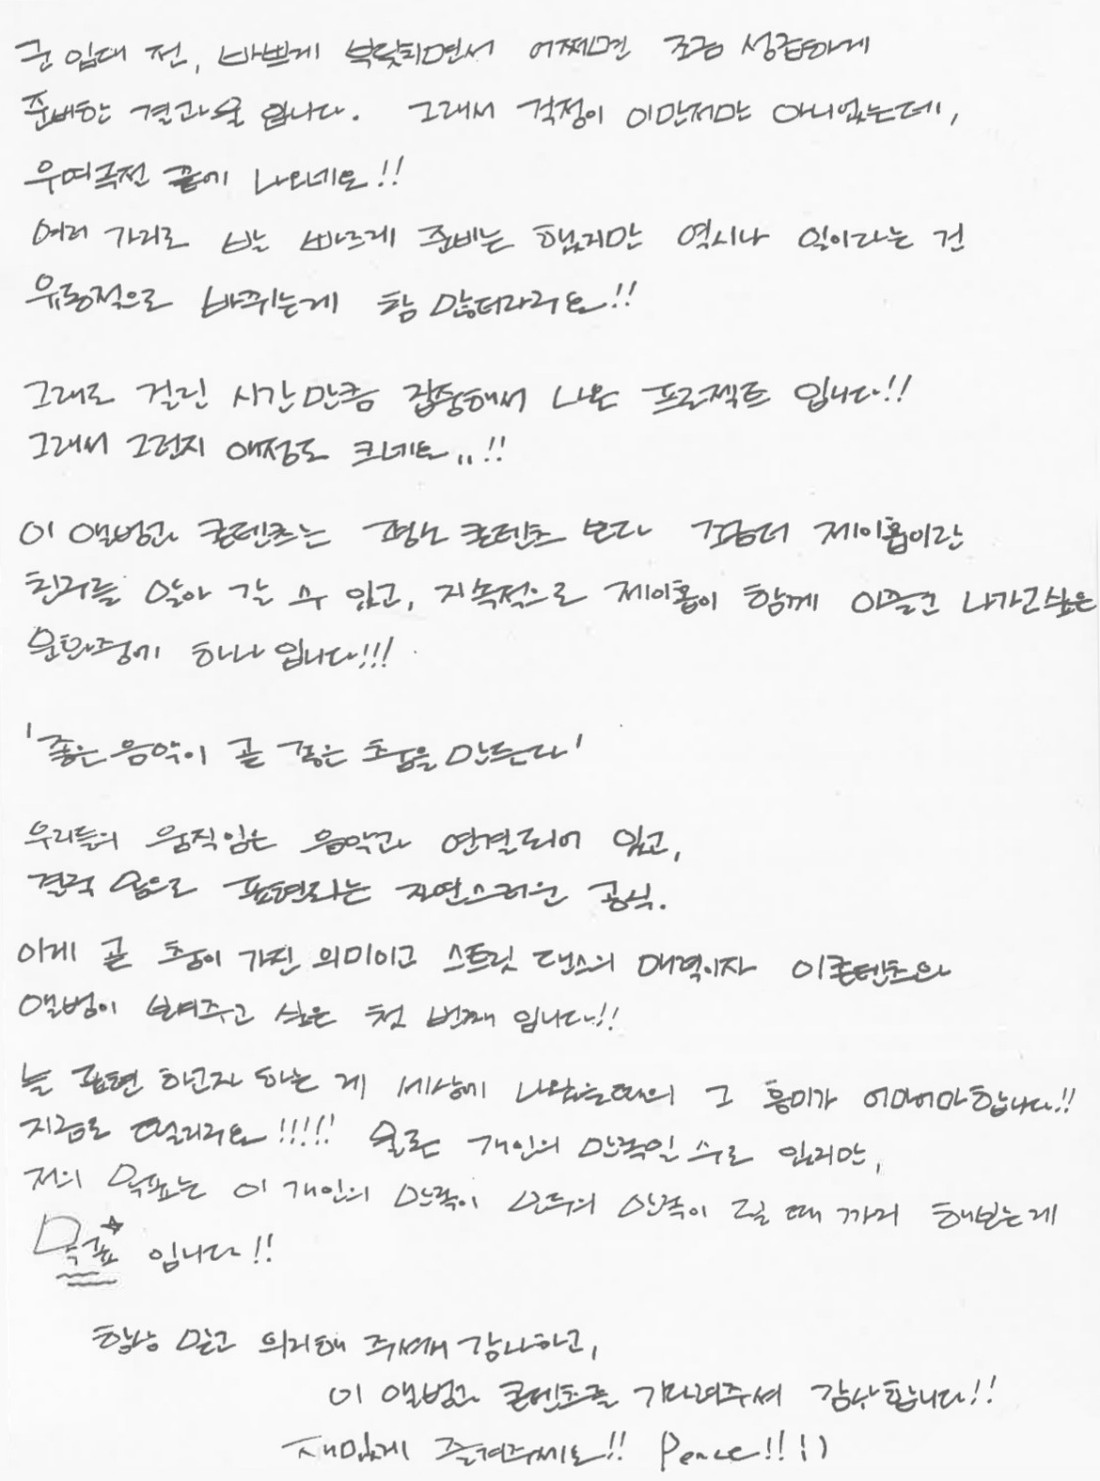 군 입대 전, 바쁘게 부딪히면서 어쩌면 조금 성급하게
준비한 결과물 입니다. 그래서 걱정이 이만저만 아니었는데,
우여곡절 끝에 나오네요!!
여러 가지로 발 빠르게 준비는 했지만 역시나 일이라는 건
유동적으로 바뀌는게 참 많더라구요!!
그래도 걸린 시간만큼 집중해서 나온 프로젝트 입니다!!
그래서 그런지 애정도 크네요..!!
이 앨범과 콘텐츠는 콘텐츠 보다 좀더 제이홉이란
친구를 알아 갈 수 있고, 지속적으로 제이홉이 함께 이끌고 나가고싶은
문화중에 하나 입니다!!!
'좋은 음악이 곧 좋은 춤을 만든다'
우리들의 움직임은 음악과 연결되어 있고,
결국 몸으로 표현되는 자연스러운 공식.
이게 곧 춤이 가진 의미이고 스트릿 댄스의 매력이자 이콘텐츠와
앨범이 보여주고 싶은 첫 번째 입니다!!
늘 표현 하고자 하는 게 세상에 나왔을때의 그 흥미가 어마어마합니다!!
지금도 떨리구요!!!!! 물론 개인의 만족일 수도 있지만,
저의 목표는 이 개인의 만족이 모두의 만족이 될 때 까지 해보는게
목표 입니다!!
항상 믿고 의지해 주셔서 감사하고,
이 앨범과 콘텐츠를 기다려주셔 감사합니다!!
재밌게 즐겨주세요!! Peace!! :)